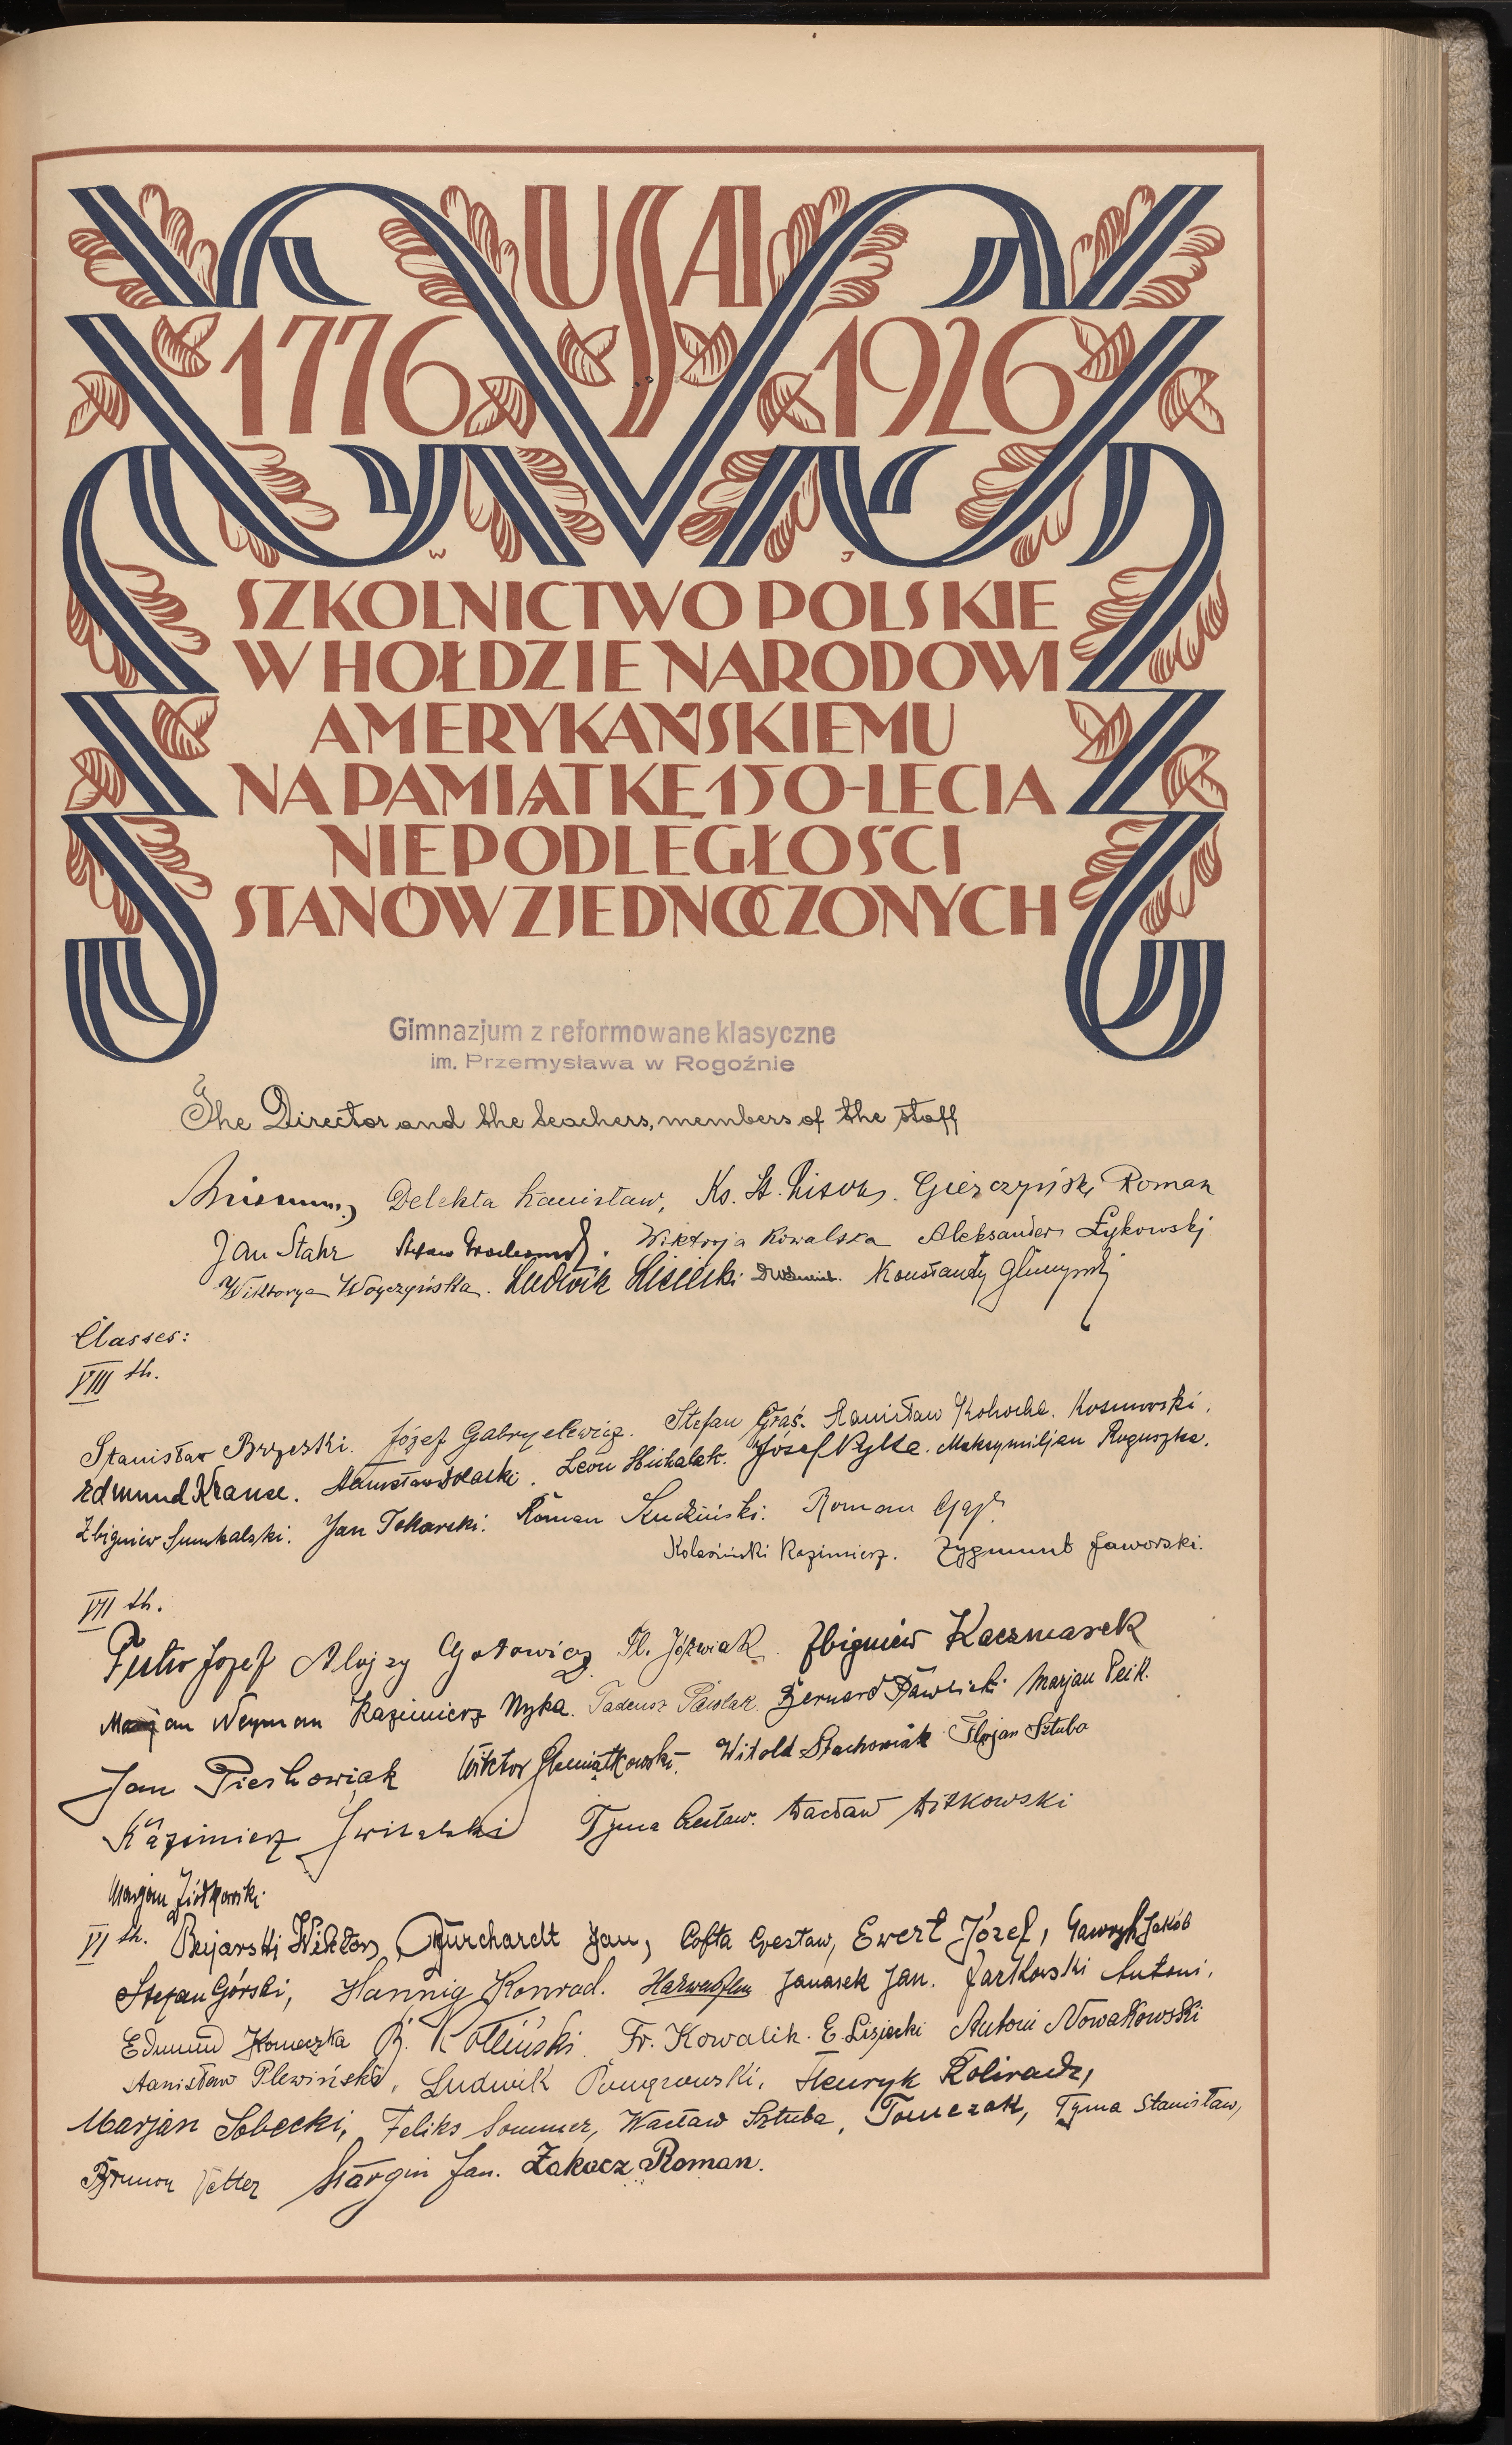 USA
1776 1926
W J
SZKOLNICTWO POLSKIE
W HOŁDZIE NARODOWI
AMERYKAŃSKIEMU
NA PAMIĄTKĘ 150-LECIA
NIEPODLEGŁOŚCI
STANÓW ZJEDNOCZONYCH
Gimnazjum z reformowane klasyczne
im. Przemysława w Rogoźnie
The Director and the teachers, members of the staff
Delekta Stanisław, Ks. St. Gierczyński Roman
Jan Stahr Stefan Wiktorja Kowalska Aleksander Łykowski
Wiktorya Woyczyńska. Ludwik Lisiecki Konstanty
Classes:
VIII th.
Stanisław Brzeski. Józef Gabryelewicz. Stefan Graś. Stanisław Kohocha. Kosmowski.
Edmund Krause. Stanisław Leon Michalak. Józef Pytka. Maksymiljan Roguszka.
Zbigniew Jan Tokarski. Roman Roman Gaj.
Kolasiński Kazimierz. Zygmunt Jaworski.
VII th.
Futro Józef Alojzy Gotowicz. Fl. Jóźwiak. Zbigniew Kaczmarek
Marjan Neyman Kazimierz Nyka. Tadeusz Pawlak. Bernard Pawlicki Marjan Peik.
Jan Pieskowiak Wiktor Słemiątkowski. Witold Stachowiak Florjan Sztuba
Kazimierz Świtalski Tyma Czesław. Wacław Witkowski
Marjan Ziółkowski.
VI th. Bejarski Wiktor, Burchardt Jan, Cofta Czesław, Ewert Józef, Gawrych Jakób
Stefan Górski, Hannig Konrad. Janasek Jan. Jartkowski Antoni,
Edmund Komeczka B. Kotliński. Fr. Kowalik. E. Lisiecki Antoni Nowakowski
Stanisław Plewiński, Ludwik Henryk
Marjan Sobecki, Feliks Sommer, Wacław Sztuba, Tomczak, Tyma Stanisław,
Brunon Vetter Jan. Żakacz Roman.